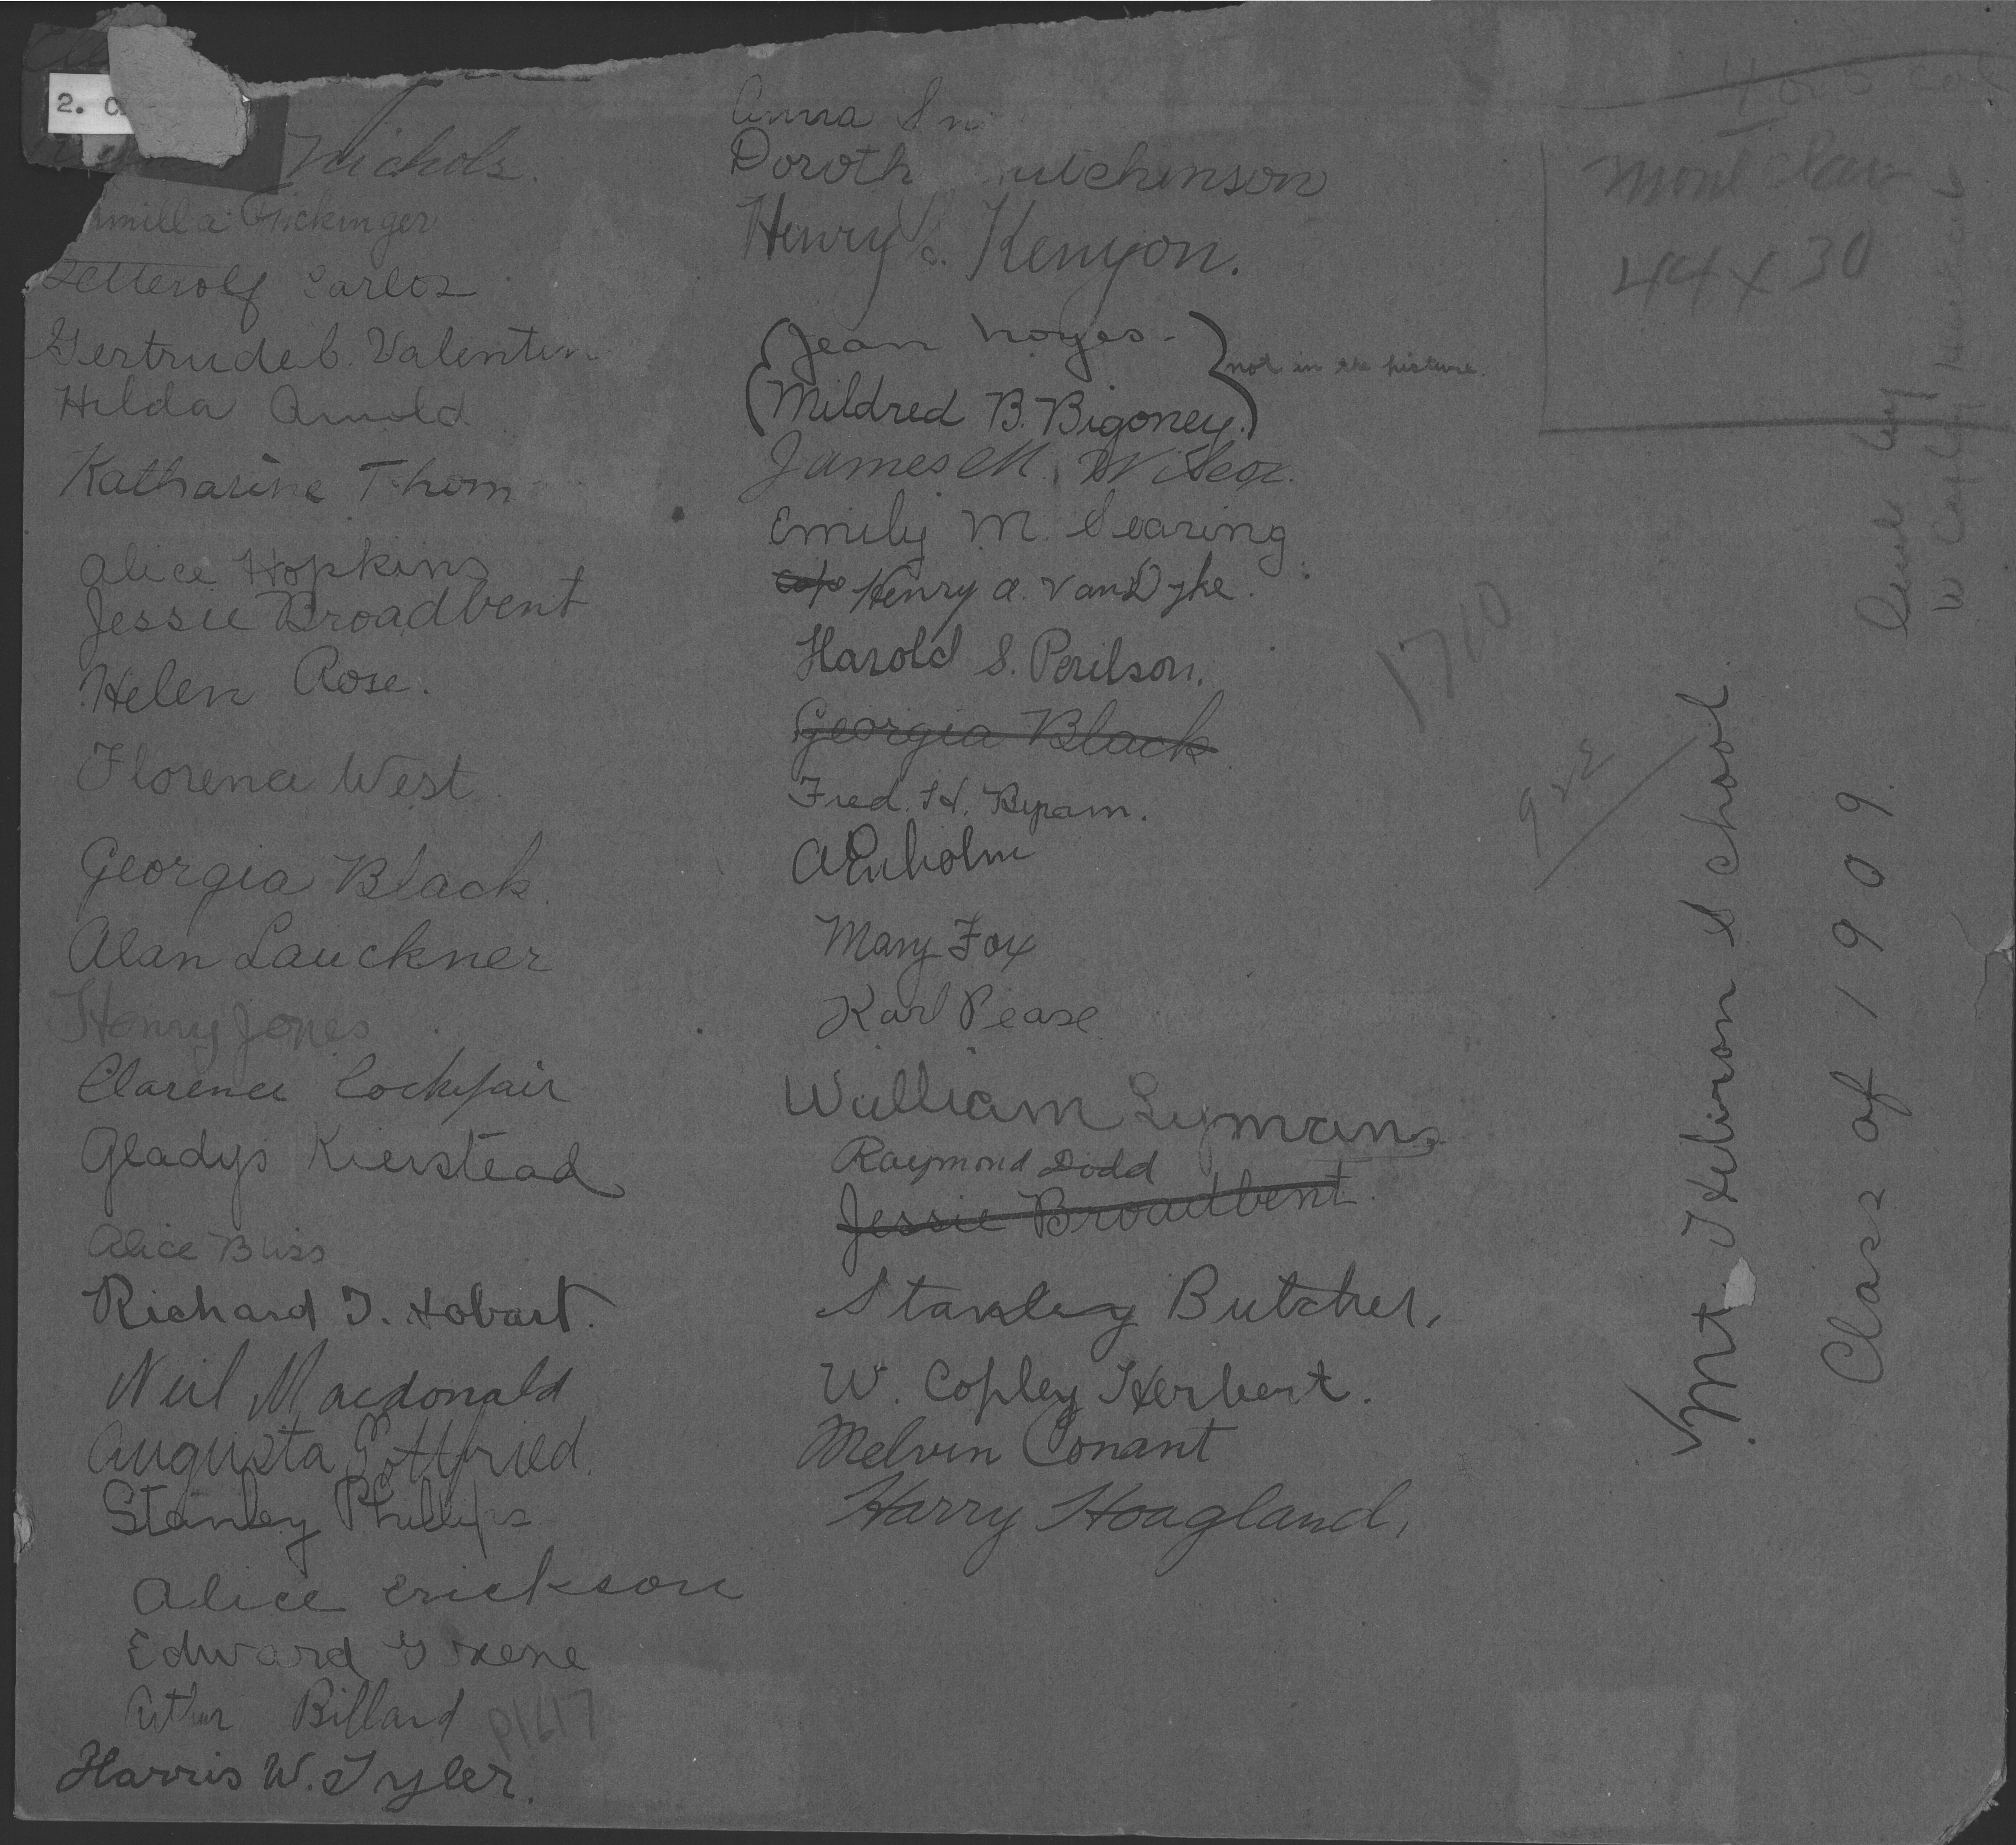 2. C
Nichols.
Carlos
Gertrude C. Valentin
Hilda Arnold
Katharine Thom
Alice Hopkins
Jessie Broadbent
Helen Rose.
Florence West
Georgia Black
Alan Lauckner
Henry Jones
Clarence Cockefair
Gladys Kierstead
Alice Bliss
Richard T. Hobart.
Neil Macdonald
Augusta Gottfried.
Stanley Phillips
Alice Erickson
Edward Greene
Arthur Billard
P1617
Harris W. Tyler.
Anna S
Doroth utchinson
Henry Kenyon.
Jean Noyes -
not in the picture.
Mildred B. Bigoney.
James M. Wilcox.
Emily M. Searing
Henry A. Van Dyke.
Harold S. Perilson.
Georgia Black
Fred. H. Byram.
Mary Fox
Karl Pease
William Lyman
Raymond Dodd
Jessie Broadbent
Stanley Butcher.
W. Copley Herbert.
Melvin Conant
Harry Hoagland.
4 or 5 Col
Montclair
44 x 30
1710
922
Mt Hebron School
Class of 1909.
Lent by
W Copley Herbert